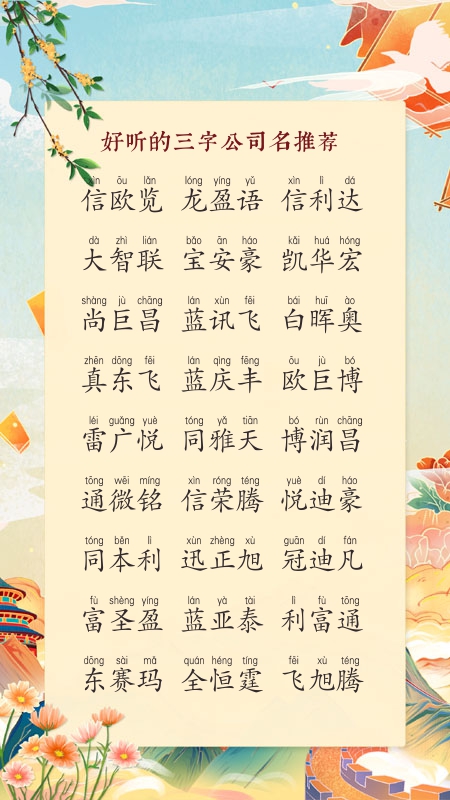 好听的三字公司名推荐
xìn ōu lǎn lóng yíng yǔ xìn lì dá
信欧览 龙盈语 信利达
dà zhì lián bǎo ān háo kǎi huá hóng
大智联 宝安豪 凯华宏
shàng jù chāng lán xùn fēi bái huī ào
尚巨昌 蓝讯飞 白晖奥
zhēn dōng fēi lán qìng fēng ōu jù bó
真东飞 蓝庆丰 欧巨博
léi guǎng yuè tóng yǎ tiān bó rùn chāng
雷广悦 同雅天 博润昌
tōng wēi míng xìn róng téng yuè dí háo
通微铭 信荣腾 悦迪豪
tóng běn lì xùn zhèng xù guān dí fán
同本利 迅正旭 冠迪凡
fù shèng yíng lán yà tài lì fù tōng
富圣盈 蓝亚泰 利富通
dōng sài mǎ quán héng tíng fēi xù téng
东赛玛 全恒霆 飞旭腾